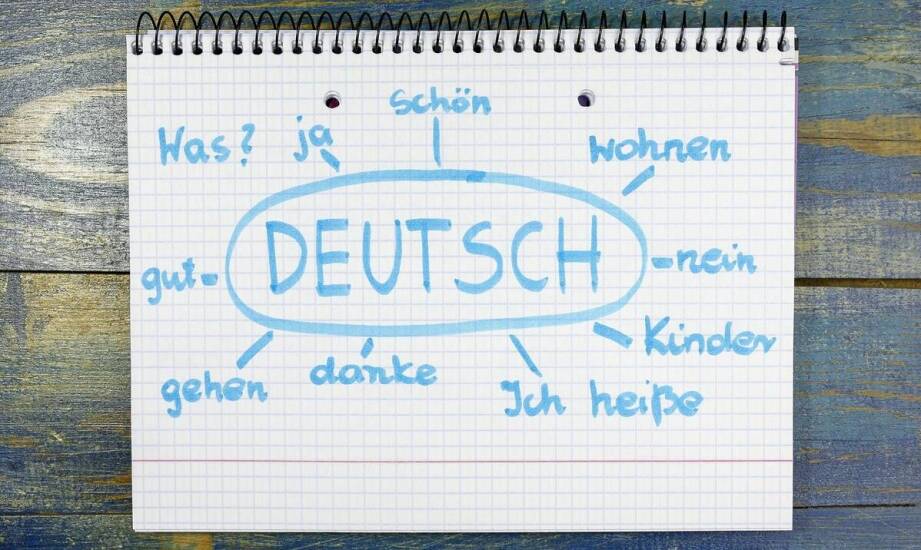 schön
Was? ja
wohnen
DEUTSCH
gut
nein
Kinder
danke
gehen
Ich heiße